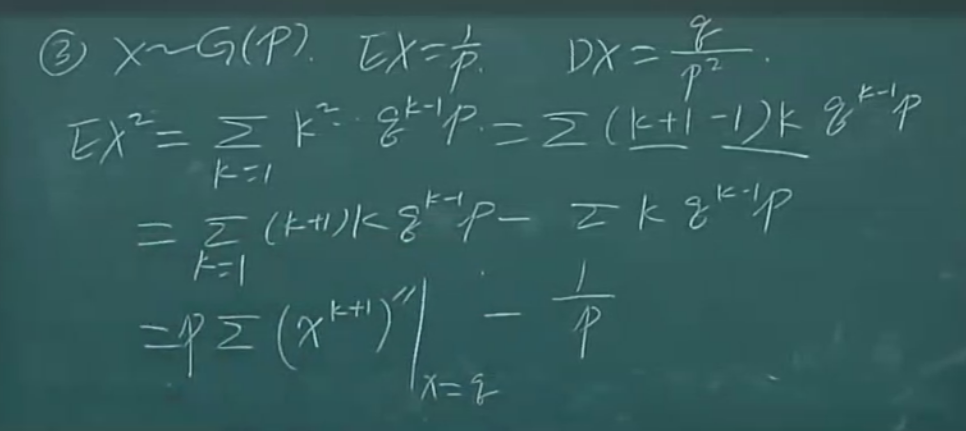 ③ X~G(P). EX=1/p. DX=q/p².
EX²= Σ_{k=1} k²·q^{k-1}p.=Σ(k+1-1)k q^{k-1}p
= Σ_{k=1} (k+1)k q^{k-1}p- Σ k q^{k-1}p
=pΣ(x^{k+1})''|_{x=q} - 1/p